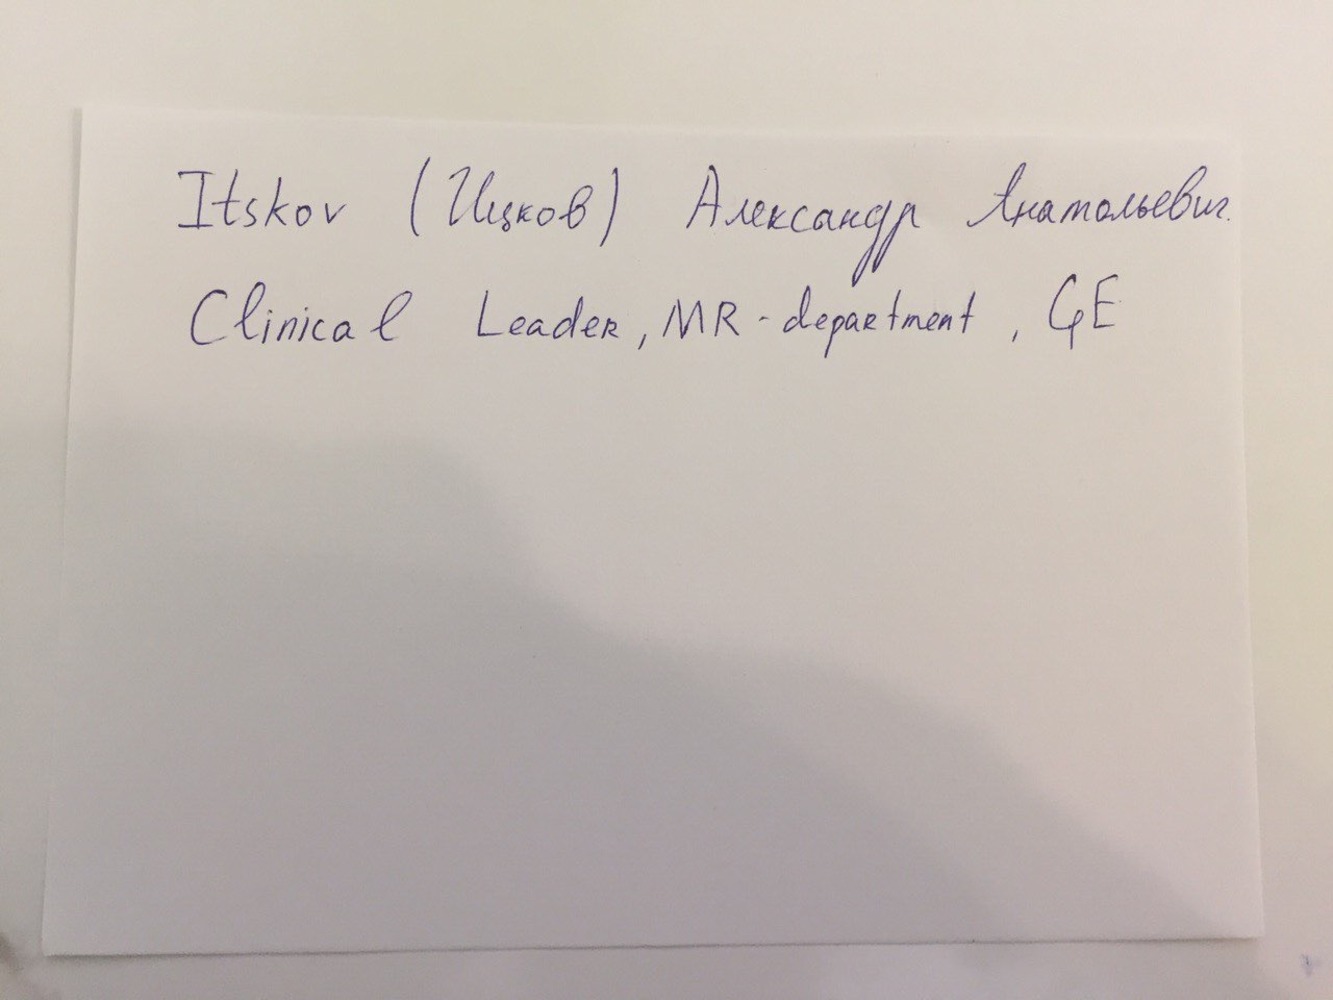 Itskov (Ицков) Александр Анатольевич
Clinical Leader, MR-department, GE